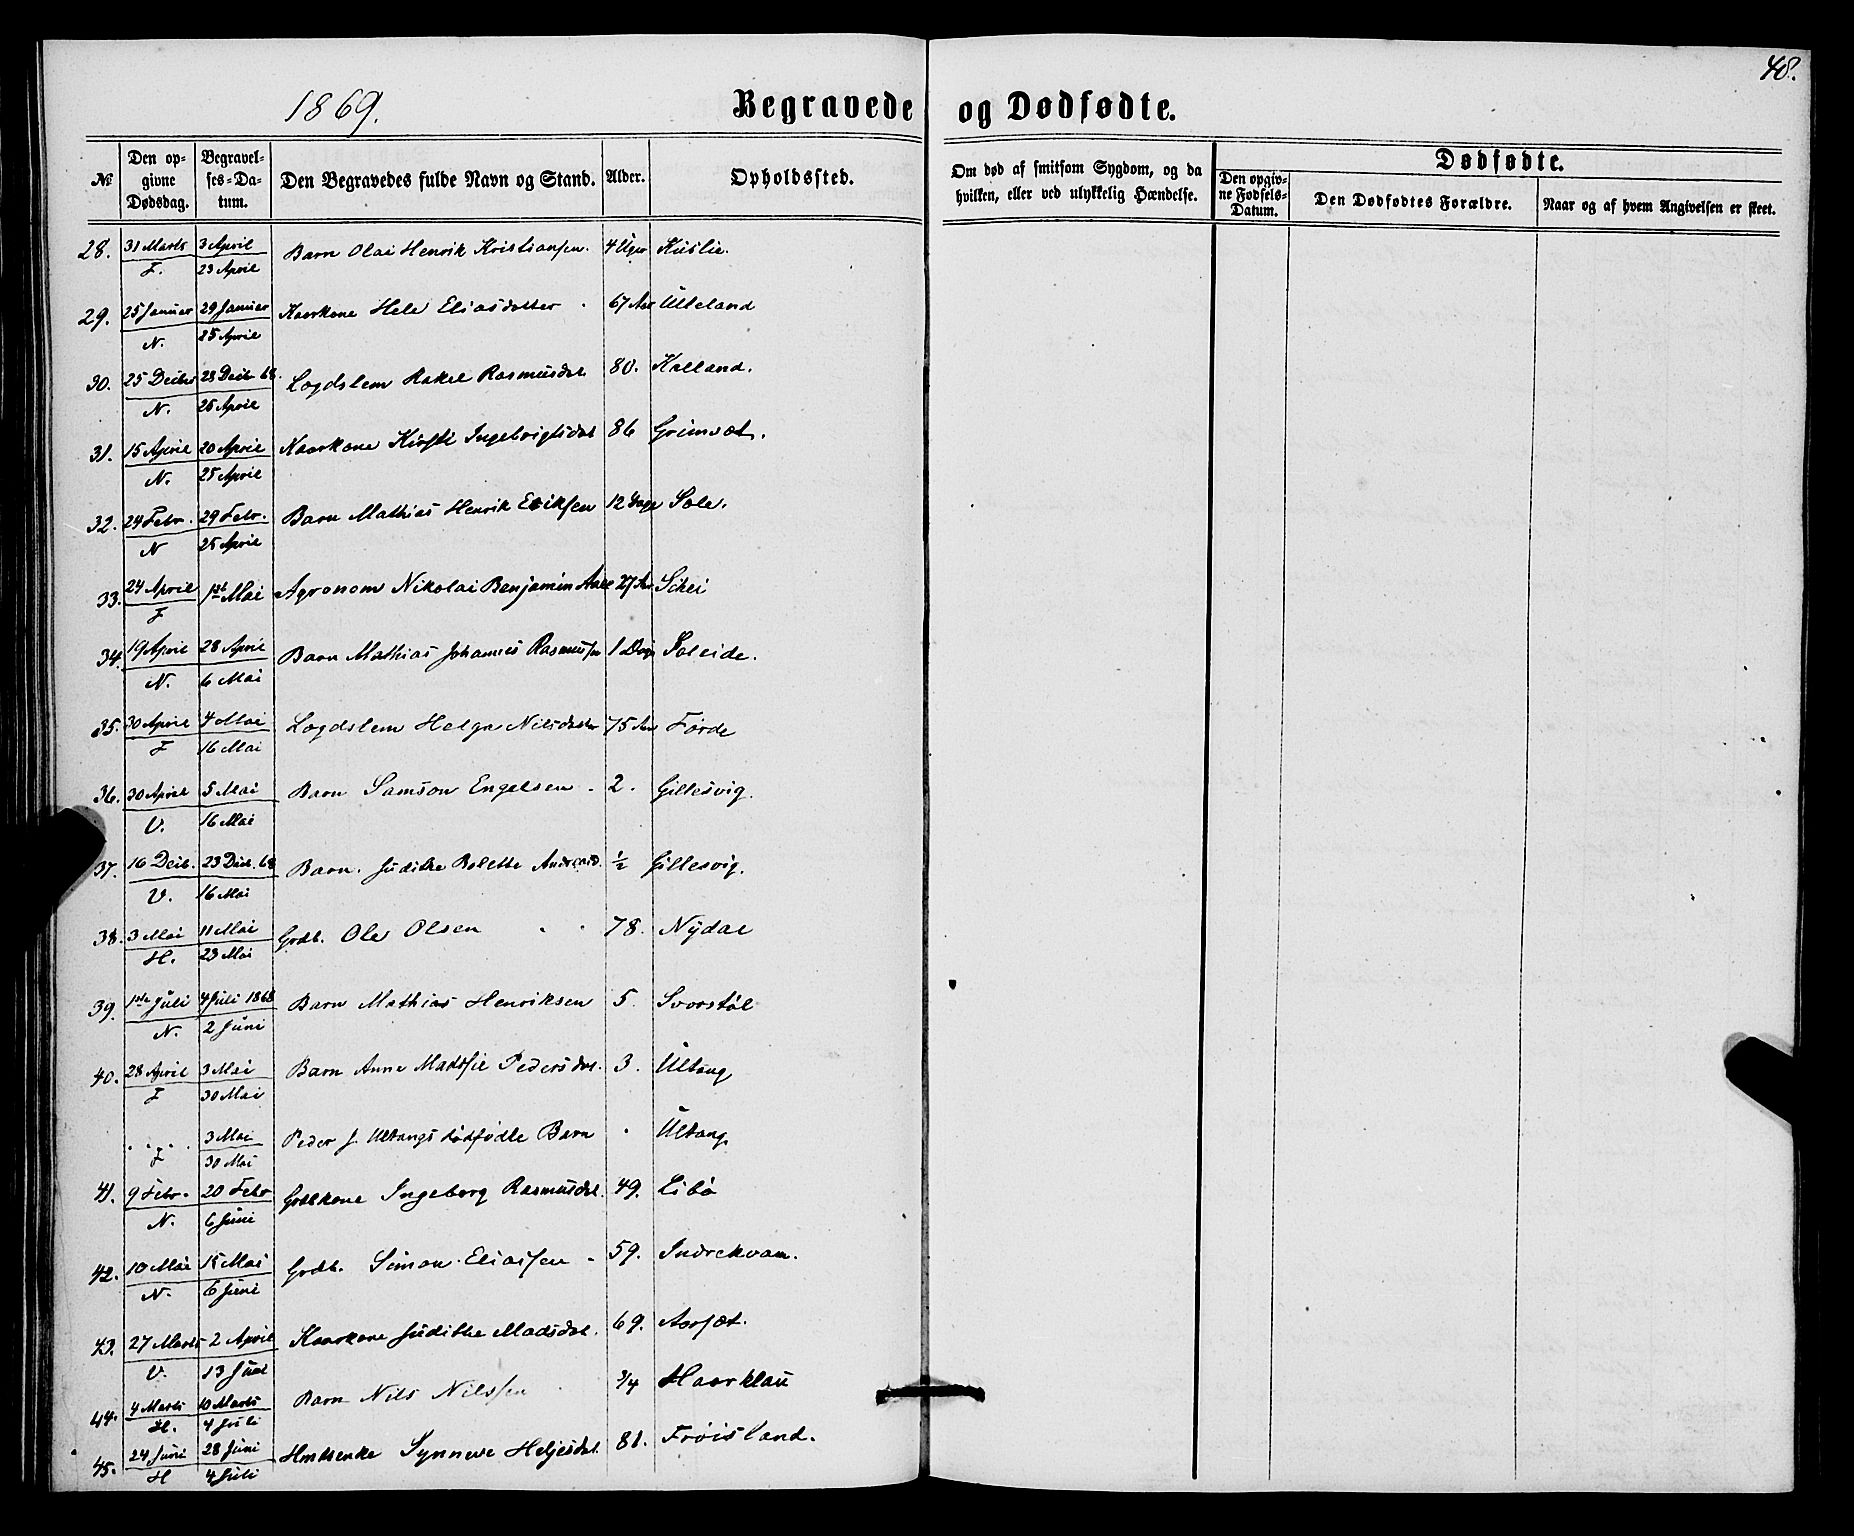 48.
1869.
Begravede og Dødfødte.
№
Den op-
givne
Dødsdag.
Begravel-
ses-Da-
tum.
Den Begravedes fulde Navn og Stand.
Alder.
Opholdssted.
Om død af smitsom Sygdom, og da
hvilken, eller ved ulykkelig Hændelse.
Dødfødte.
Den opgiv-
ne Fødsels-
Datum.
Den Dødfødtes Forældre.
Naar og af hvem Angivelsen er skeet.
28. 31 Marts 3 April Barn Olai Henrik Kristiansen. 4 Uger Kuslie.
F. 23 April
29. 25 Januar 29 Januar Kaarkone Hele Eliasdotter 67 Aar Ulleland
N. 25 April
30. 25 Decbr 28 Decb 68. Lægdslem Rakel Rasmusdat 80. Kalland.
N. 25 April
31. 15 April 20 April Kaarkone Kirsti Ingebrigtsdat 86 Grimset.
N. 25 April
32. 24 Febr. 29 Febr. Barn Mathias Henrik Eriksen 12 Dage Sole.
N 25 April
33. 24 April 1ste Mai Agronom Nikolai Benjamin 27 Aar Schei
F
34. 19 April 28 April Barn Mathias Johannes Rasmussen 1 Dag Soleide.
N. 6 Mai
35. 30 April 4 Mai Lægdslem Helga Nilsdatter 75 Aar Førde
F 16 Mai
36. 30 April 5 Mai Barn Samson Engelsen 2. Gillesvig.
V. 16 Mai
37. 16 Decb. 23 Decb. 68 Barn. Judithe Bolette Andreasd. ½ Gillesvig.
V. 16 Mai
38. 3 Mai 11 Mai Grdb. Ole Olsen 78. Nydal
H. 23 Mai
39. 1ste Juli 4 Juli 1868 Barn Mathias Henriksen 5. Svorstøl
N. 2 Juni
40. 28 April 3 Mai Barn Anne Madsfie Pedersdat. 3. Ultang
F 30 Mai
3 Mai Peder J. Ultangs dødfødte Barn Ultang
F 30 Mai
41. 9 Febr. 20 Febr Grdbkone Ingeborg Rasmusdat. 49. Libø
N. 6 Juni
42. 10 Mai 15 Mai Grdb. Simon Eliassen 59. Indrekvam.
N. 6 Juni
43. 27 Marts 2 April Kaarkone Judithe Madsdat. 69. Aarsæt.
V. 13 Juni
44. 4 Marts 10 Marts Barn Nils Nilssen ¾ Haarklau
H. 4 Juli
45. 24 Juni 28 Juni Hmdsenke Synneve Heljesdat. 81. Frøisland.
H 4 Juli